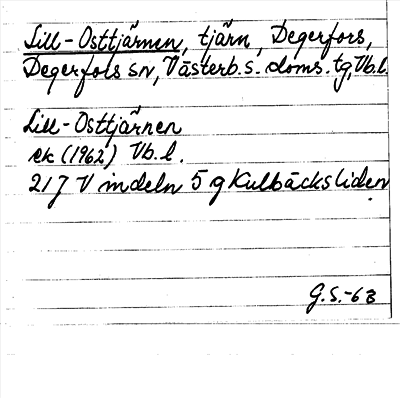 Lill-Osttjärnen, tjärn, Degerfors,
Degerfors sn, Västerb. s. doms. tg, Vb.l.
Lill-Osttjärnen
ek (1962) Vb.l.
21 J V indeln 5 g Kulbäcksliden
G.S.-63